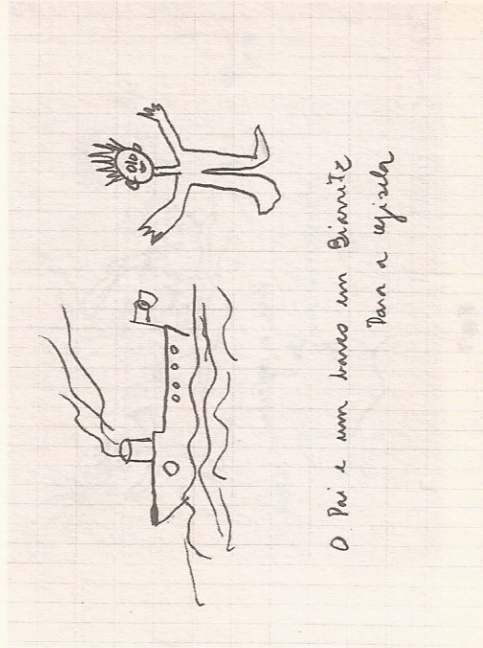 O Pai e um barco em Biarritz
Para a